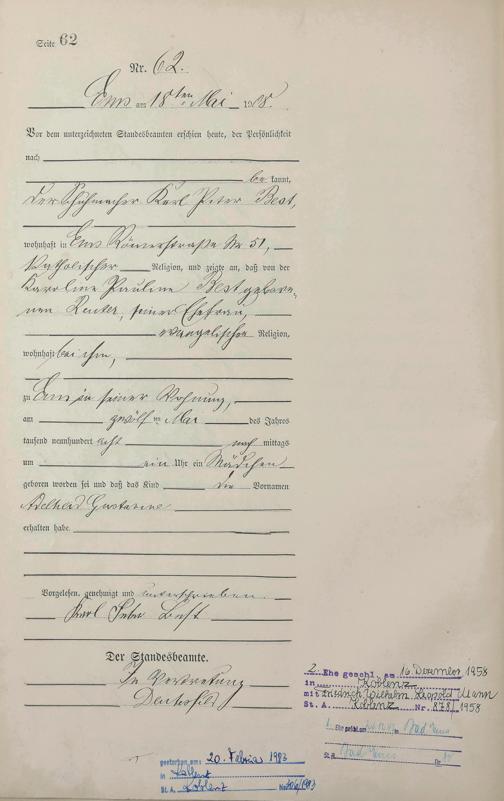 Seite 62
Nr. 62.
Ems am 18ten Mai 1908.
Vor dem unterzeichneten Standesbeamten erschien heute, der Persönlichkeit
nach
be kannt,
der Schuhmacher Karl Peter Best,
wohnhaft in Ems Römerstraße Nr 51,
katholischer Religion, und zeigte an, daß von der
Karoline Pauline Best gebore-
nen Reuter, seiner Ehefrau,
evangelischer Religion,
wohnhaft bei ihm,
zu Ems in seiner Wohnung,
am zwölften Mai des Jahres
tausend neunhundert acht nach mittags
um ein Uhr ein Mädchen
geboren worden sei und daß das Kind die Vornamen
Adelheid Gustavine
erhalten habe.
Vorgelesen, genehmigt und unterschrieben.
Karl Peter Best
Der Standesbeamte.
In Vertretung
2. Ehe geschl. am 16. Dezember 1958
in Koblenz
mit Friedrich Wilhelm Leopold Mann
St. A. Koblenz Nr. 878/1958
1. Ehe geschl. am in Bad Ems
St. A. Bad Ems Nr.
gestorben am: 20. Februar 1983
in Koblenz
St. A. Koblenz Nr.